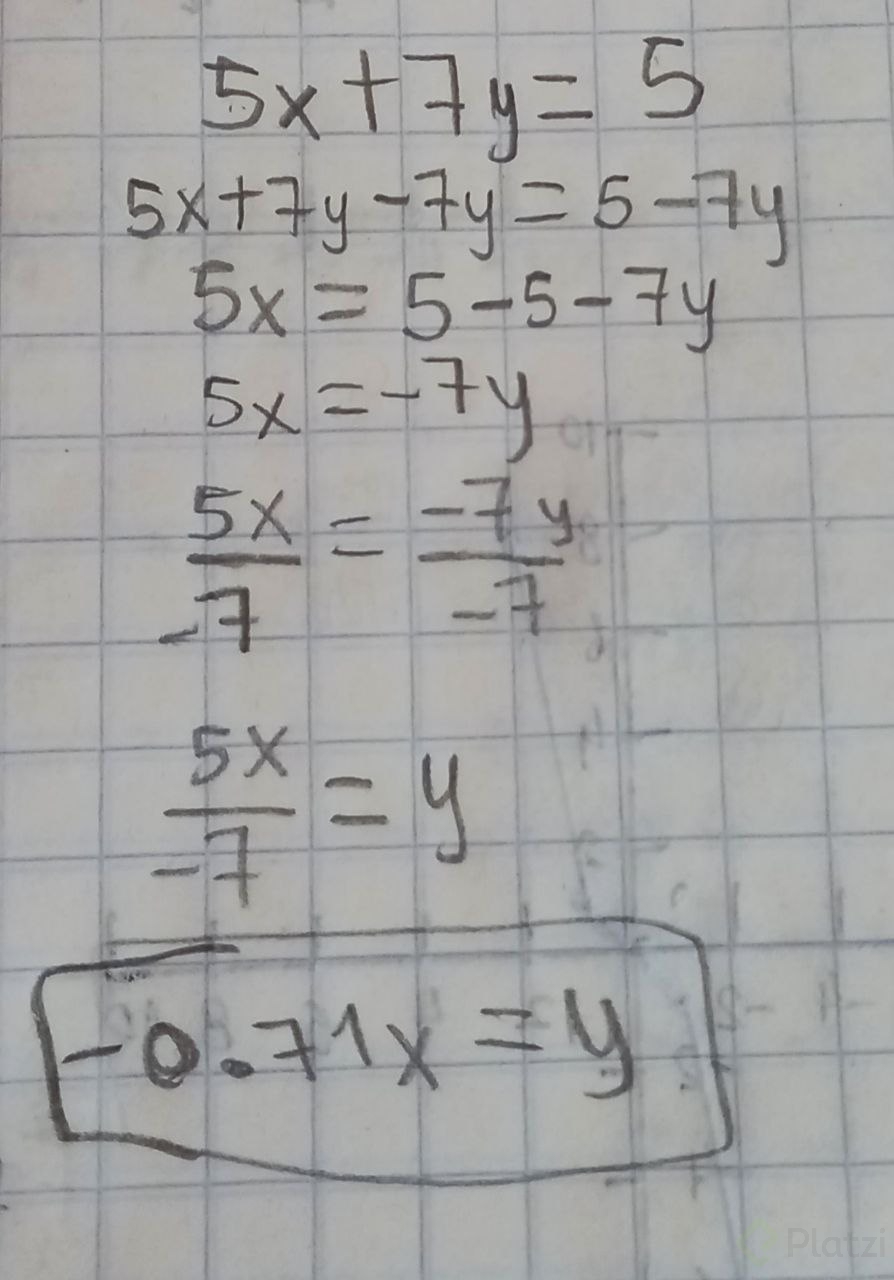 5x+7y=5
5x+7y-7y=5-7y
5x=5-5-7y
5x=-7y
5x/-7=-7y/-7
5x/-7=y
-0.71x=y
Platzi